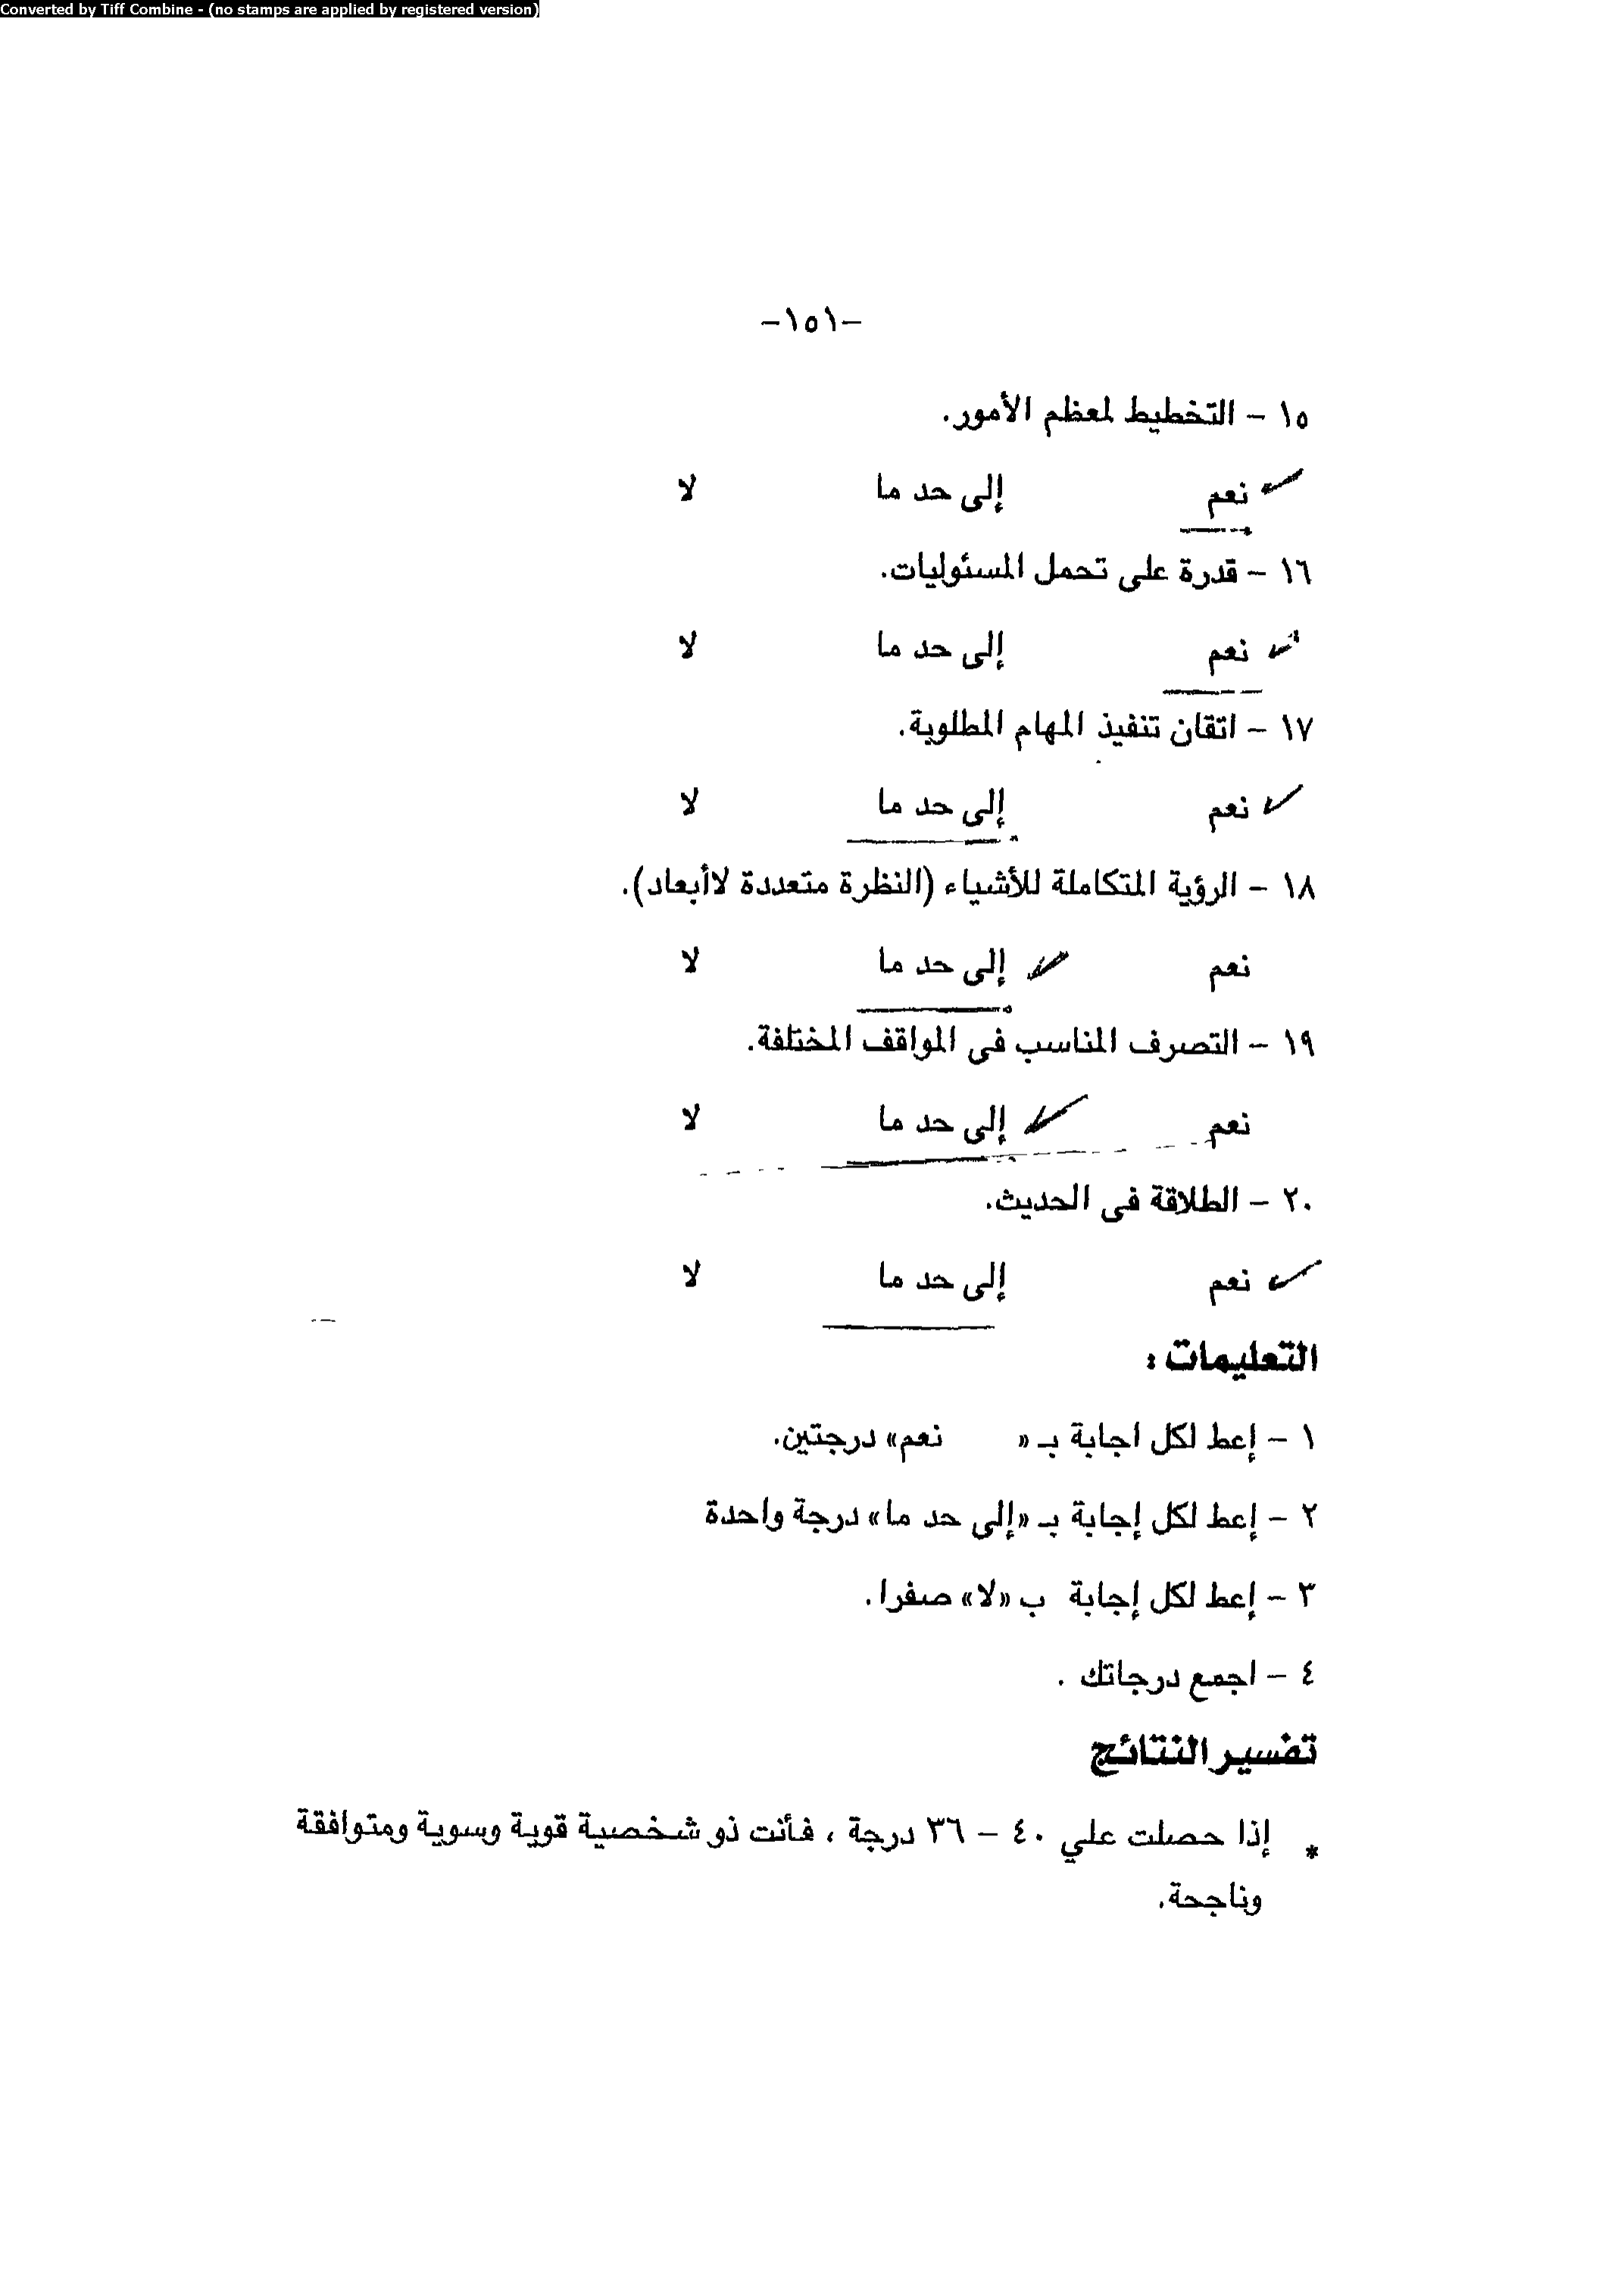 Converted by Tiff Combine - (no stamps are applied by registered version)
-١٥١-
١٥ - التخطيط لمعظم الأمور.
نعم إلى حد ما لا
١٦ - قدرة على تحمل المسئوليات.
نعم إلى حد ما لا
١٧ - اتقان تنفيذ المهام المطلوبة.
نعم إلى حد ما لا
١٨ - الرؤية المتكاملة للأشياء (النظرة متعددة لاأبعاد).
نعم إلى حد ما لا
١٩ - التصرف المناسب فى المواقف المختلفة.
نعم إلى حد ما لا
٢٠ - الطلاقة فى الحديث.
نعم إلى حد ما لا
التعليمات :
١ - إعط لكل اجابة بـ « نعم» درجتين.
٢ - إعط لكل إجابة بـ «إلى حد ما» درجة واحدة
٣ - إعط لكل إجابة ب «لا» صفرا .
٤ - اجمع درجاتك .
تفسير النتائج
* إذا حصلت علي ٤٠ - ٣٦ درجة ، فأنت ذو شخصية قوية وسوية ومتوافقة
وناجحة.